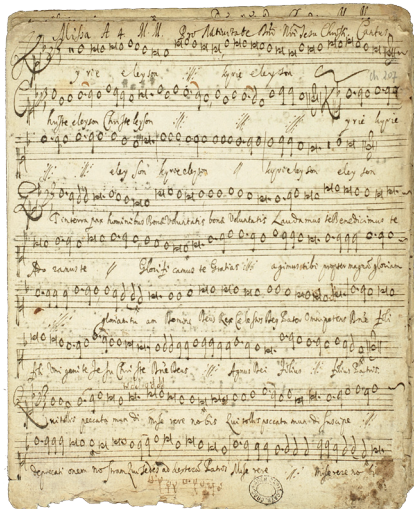 Missa A 4 M. M. Pro Nativitate Dni Nri Jesu Christi Cantus
yrie eleyson kyrie eleyson
Ch 207
Christe eleyson Christe eleyson :||: :||: yrie kyrie
:||: :||: eleyson kyrie eleyson // kyrie eleyson eleyson
Et in terra pax hominibus bonae voluntatis bonae voluntatis Laudamus te Benedicimus te
Ado ramus te // Glorificamus te Gratias :||: agimus tibi propter magnam gloriam
:||: gloriam tu am Domine Deus Rex Coelestis Deus Pater Omnipotens Dne Fili
Fili Unigenite Jesu Christe Dne Deus :||: Agnus Dei Filius :||: Filius Patris
Qui tollis peccata mundi Mise rere nobis Qui tollis peccata mundi suscipe :||:
deprecationem nostram Qui sedes ad dexteram Patris Mise rere :||: Miserere nobis